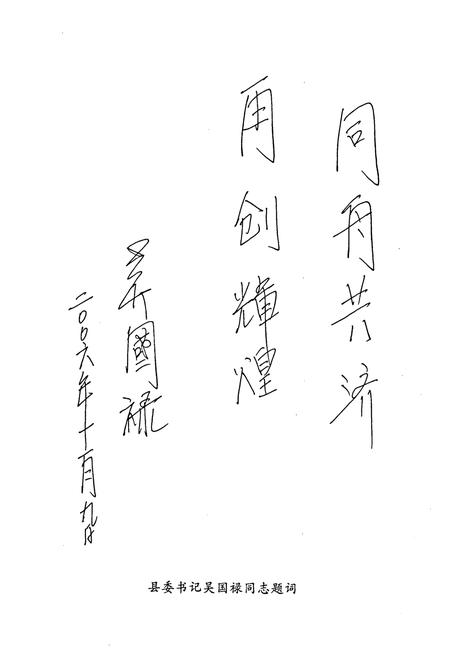 同舟共济
再创輝煌
吴國禄
二〇〇六年十一月九日
县委书记吴国禄同志题词